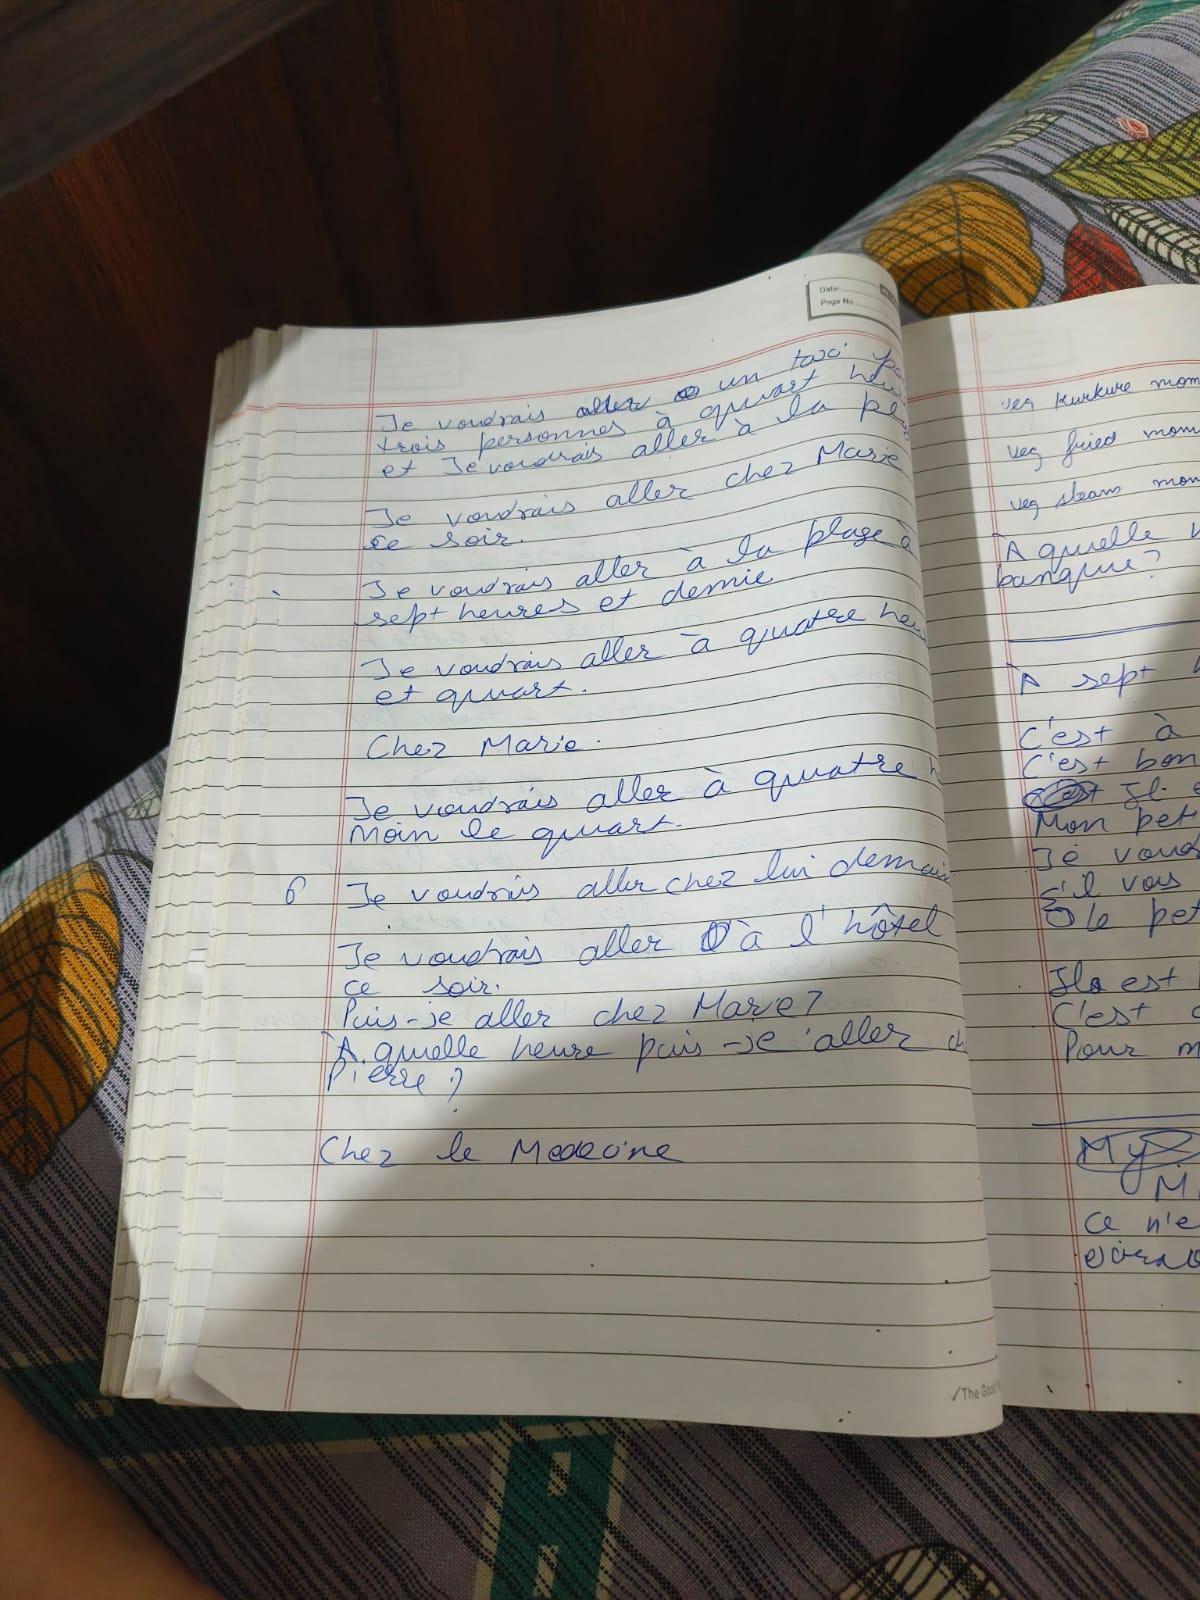 Date:
Page No.
Je voudrais un taxi
trois personnes à quart
et Je voudrais aller à la
Je voudrais aller chez Marie
ce soir.
Je voudrais aller à la plage à
sept heures et demie
Je voudrais aller à quatre
et quart.
Chez Marie.
Je voudrais aller à quatre
Moin le quart.
6 Je voudris aller chez lui
Je voudrais aller à l'hôtel
ce soir.
Puis-je aller chez Marie?
À quelle heure puis-je aller
Pierre?
Chez le Medecine
The
veg kurkure
veg fried
veg steam
À quelle
banque?
À sept
C'est à
C'est
Il
Mon
Je
s'il vous
le
est
C'est
Pour
My
Ce